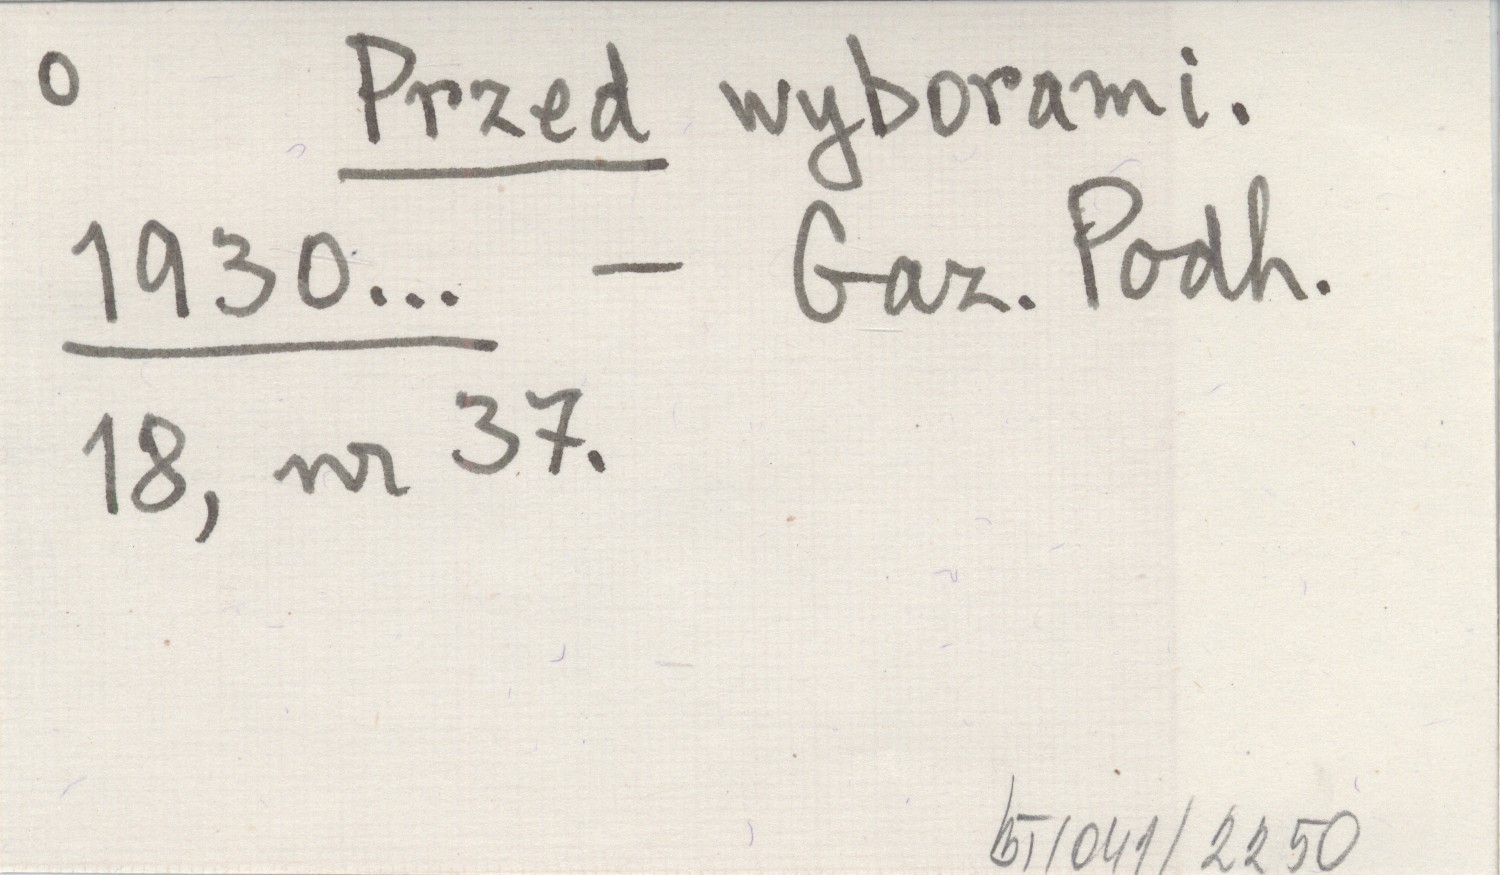 0 Przed wyborami.
1930... – Gaz. Podh.
18, nr 37.
BT/041/2250